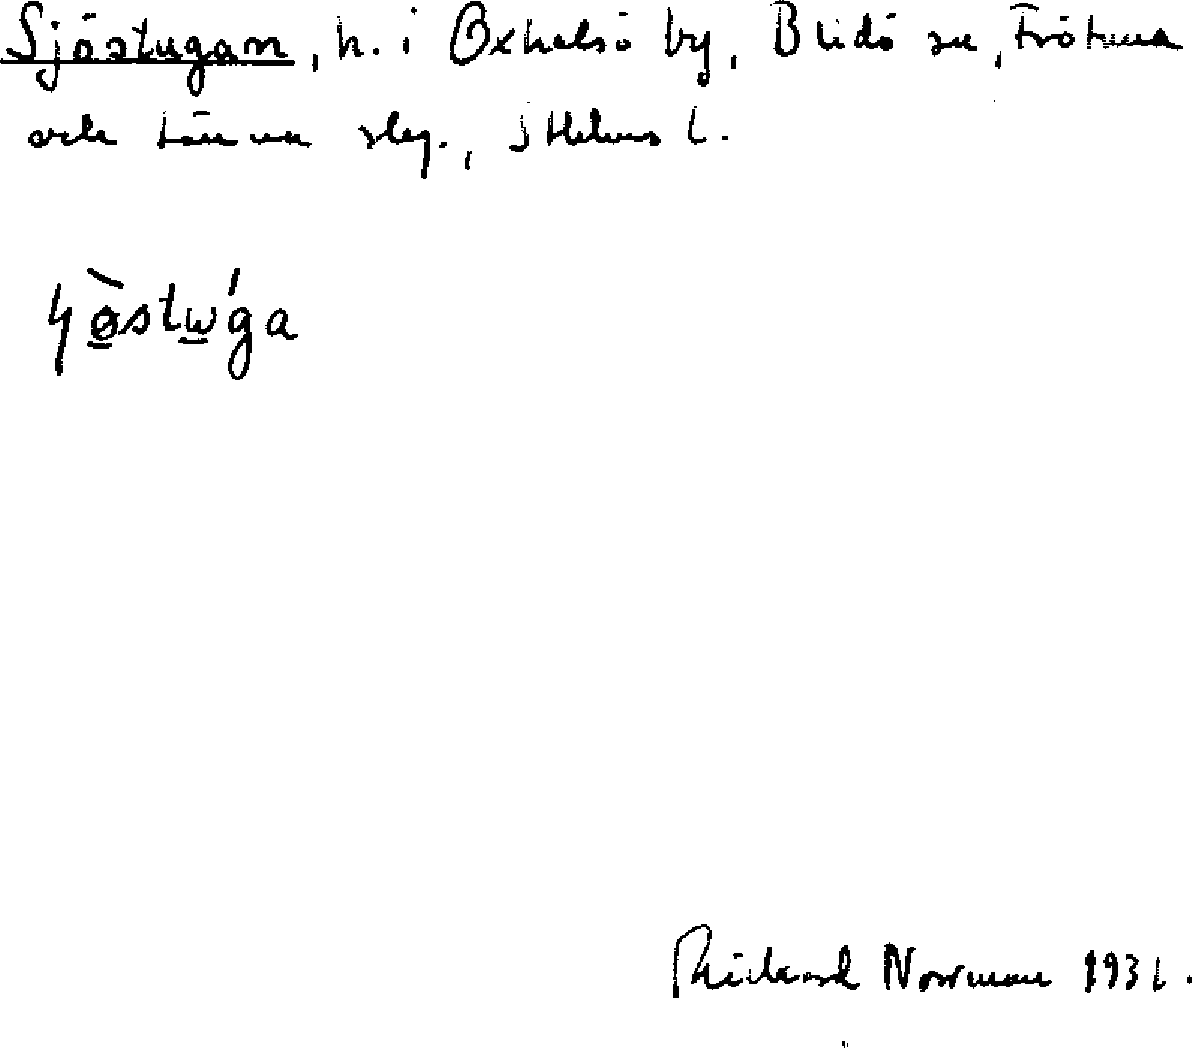 Sjöstugan, h. i Oxhalsö by, Blidö sn, Frötuna
och Länna skg., Sthlms l.
ɧø̠̀stw̠´ga
Rickard Norrman 1931.